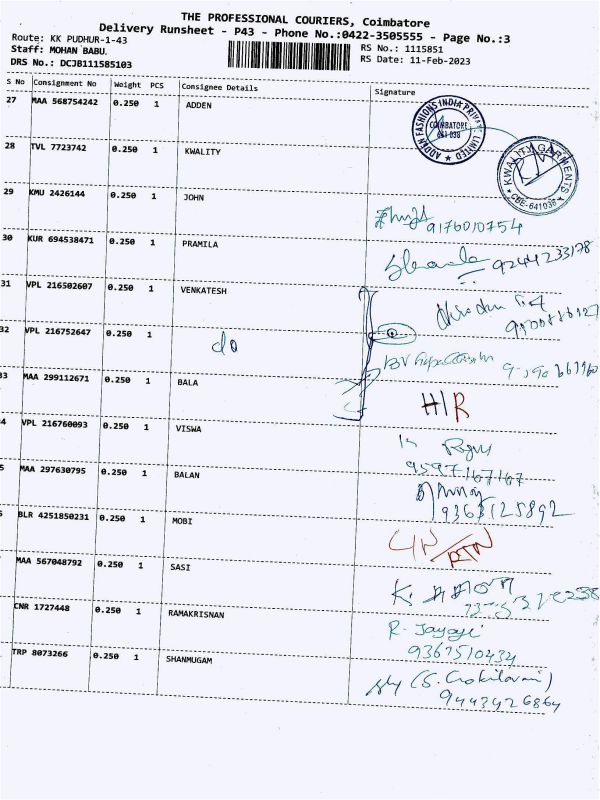 THE PROFESSIONAL COURIERS, Coimbatore
Delivery Runsheet - P43 - Phone No.:0422-3505555 - Page No.:3
Route: KK PUDHUR-1-43
RS No.: 1115851
Staff: MOHAN BABU.
RS Date: 11-Feb-2023
DRS No.: DCJB111585103
S No Consignment No Weight PCS Consignee Details Signature
27 MAA 568754242 0.250 1 ADDEN
ADDEN FASHIONS INDIA PRIVATE LIMITED
COIMBATORE
641 038
28 TVL 7723742 0.250 1 KWALITY
KWALITY GARMENTS
CBE-641038
29 KMU 2426144 0.250 1 JOHN
9176010754
30 KUR 694538471 0.250 1 PRAMILA
9244233178
31 VPL 216502607 0.250 1 VENKATESH
32 VPL 216752647 0.250 1 do
33 MAA 299112671 0.250 1 BALA
H/R
34 VPL 216760093 0.250 1 VISWA
9597167167
35 MAA 297630795 0.250 1 BALAN
9363125892
BLR 4251850231 0.250 1 MOBI
RTN
MAA 567048792 0.250 1 SASI
K.
CNR 1727448 0.250 1 RAMAKRISNAN
R. Jayayi
9367510434
TRP 8073266 0.250 1 SHANMUGAM
(S. Gokilavani)
9443426864